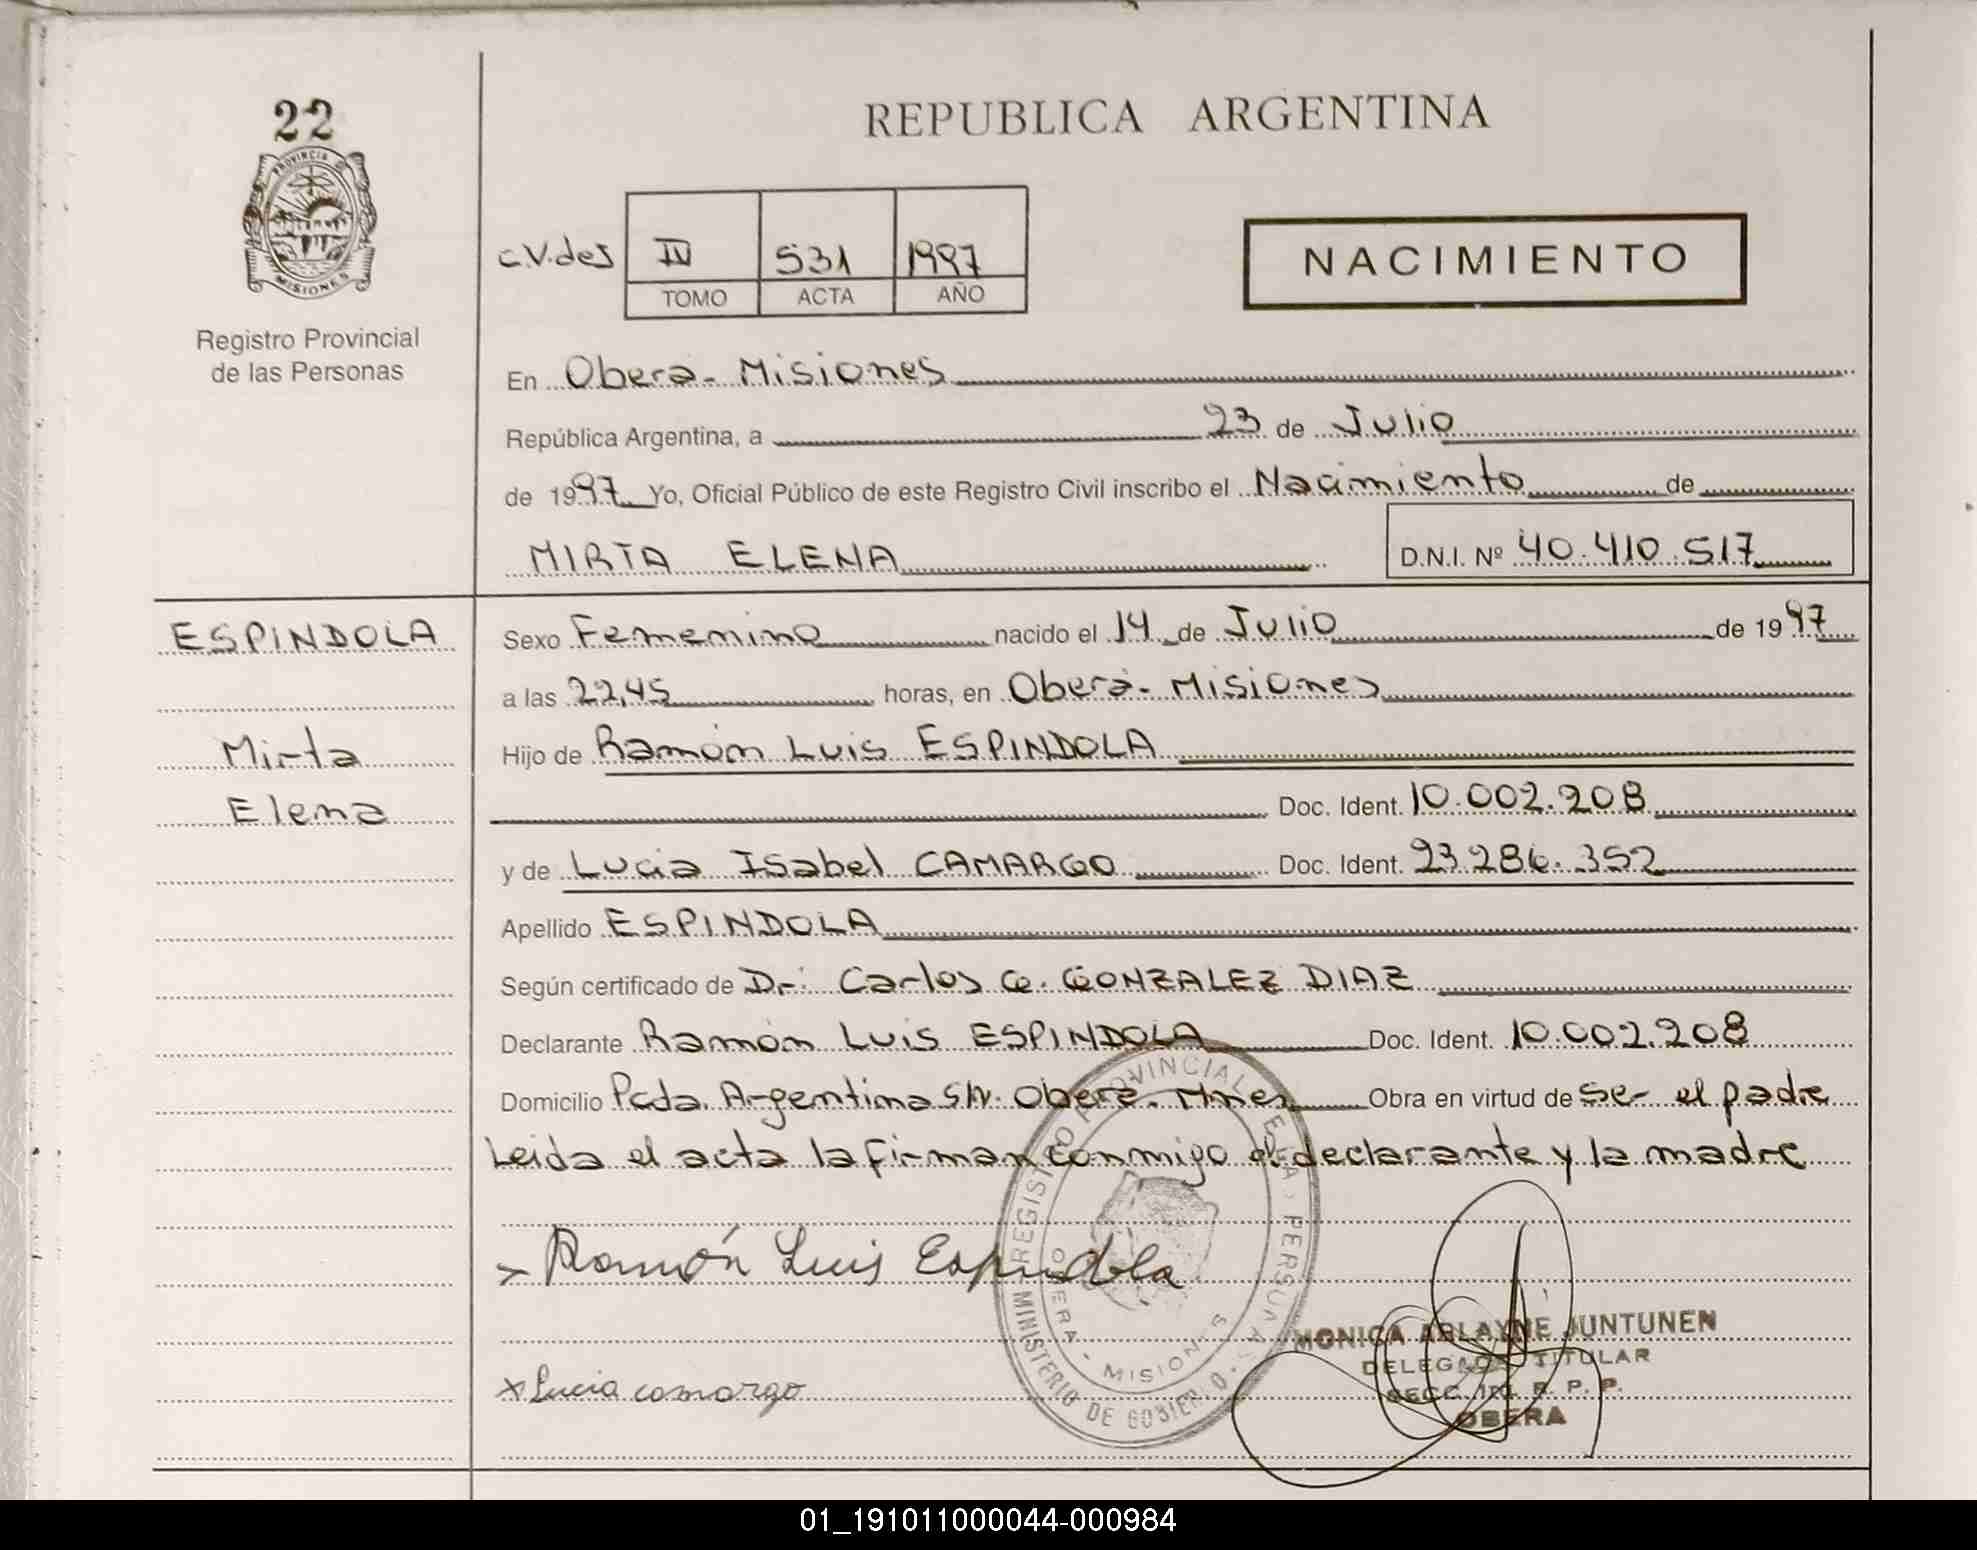 22
PROVINCIA DE
MISIONES
Registro Provincial
de las Personas
REPUBLICA ARGENTINA
C.V.des IV 531 1997
TOMO ACTA AÑO
NACIMIENTO
En Oberá - Misiones
República Argentina, a 23 de Julio
de 1997 Yo, Oficial Público de este Registro Civil inscribo el Nacimiento de
MIRTA ELENA D.N.I. Nº 40.410.517
ESPINDOLA
Mirta
Elena
Sexo Femenino nacido el 14 de Julio de 1997
a las 22,45 horas, en Oberá - Misiones
Hijo de Ramón Luis ESPINDOLA
Doc. Ident. 10.002.208
y de Lucia Isabel CAMARGO Doc. Ident. 23.286.352
Apellido ESPINDOLA
Según certificado de Dr. Carlos G. GONZALEZ DIAZ
Declarante Ramón Luis ESPINDOLA Doc. Ident. 10.002.208
Domicilio Pcda. Argentina S/N. Oberá - Mnes Obra en virtud de Ser el padre
Leida el acta la firman conmigo el declarante y la madre
Ramón Luis Espindola
x Lucia camargo
REGISTRO PROVINCIAL DE LA PERSONAS
MINISTERIO DE GOBIER
OBERA - MISIONES
MONICA JUNTUNEN
DELEGADA TITULAR
SECC. R. P. P.
OBERA
01_191011000044-000984